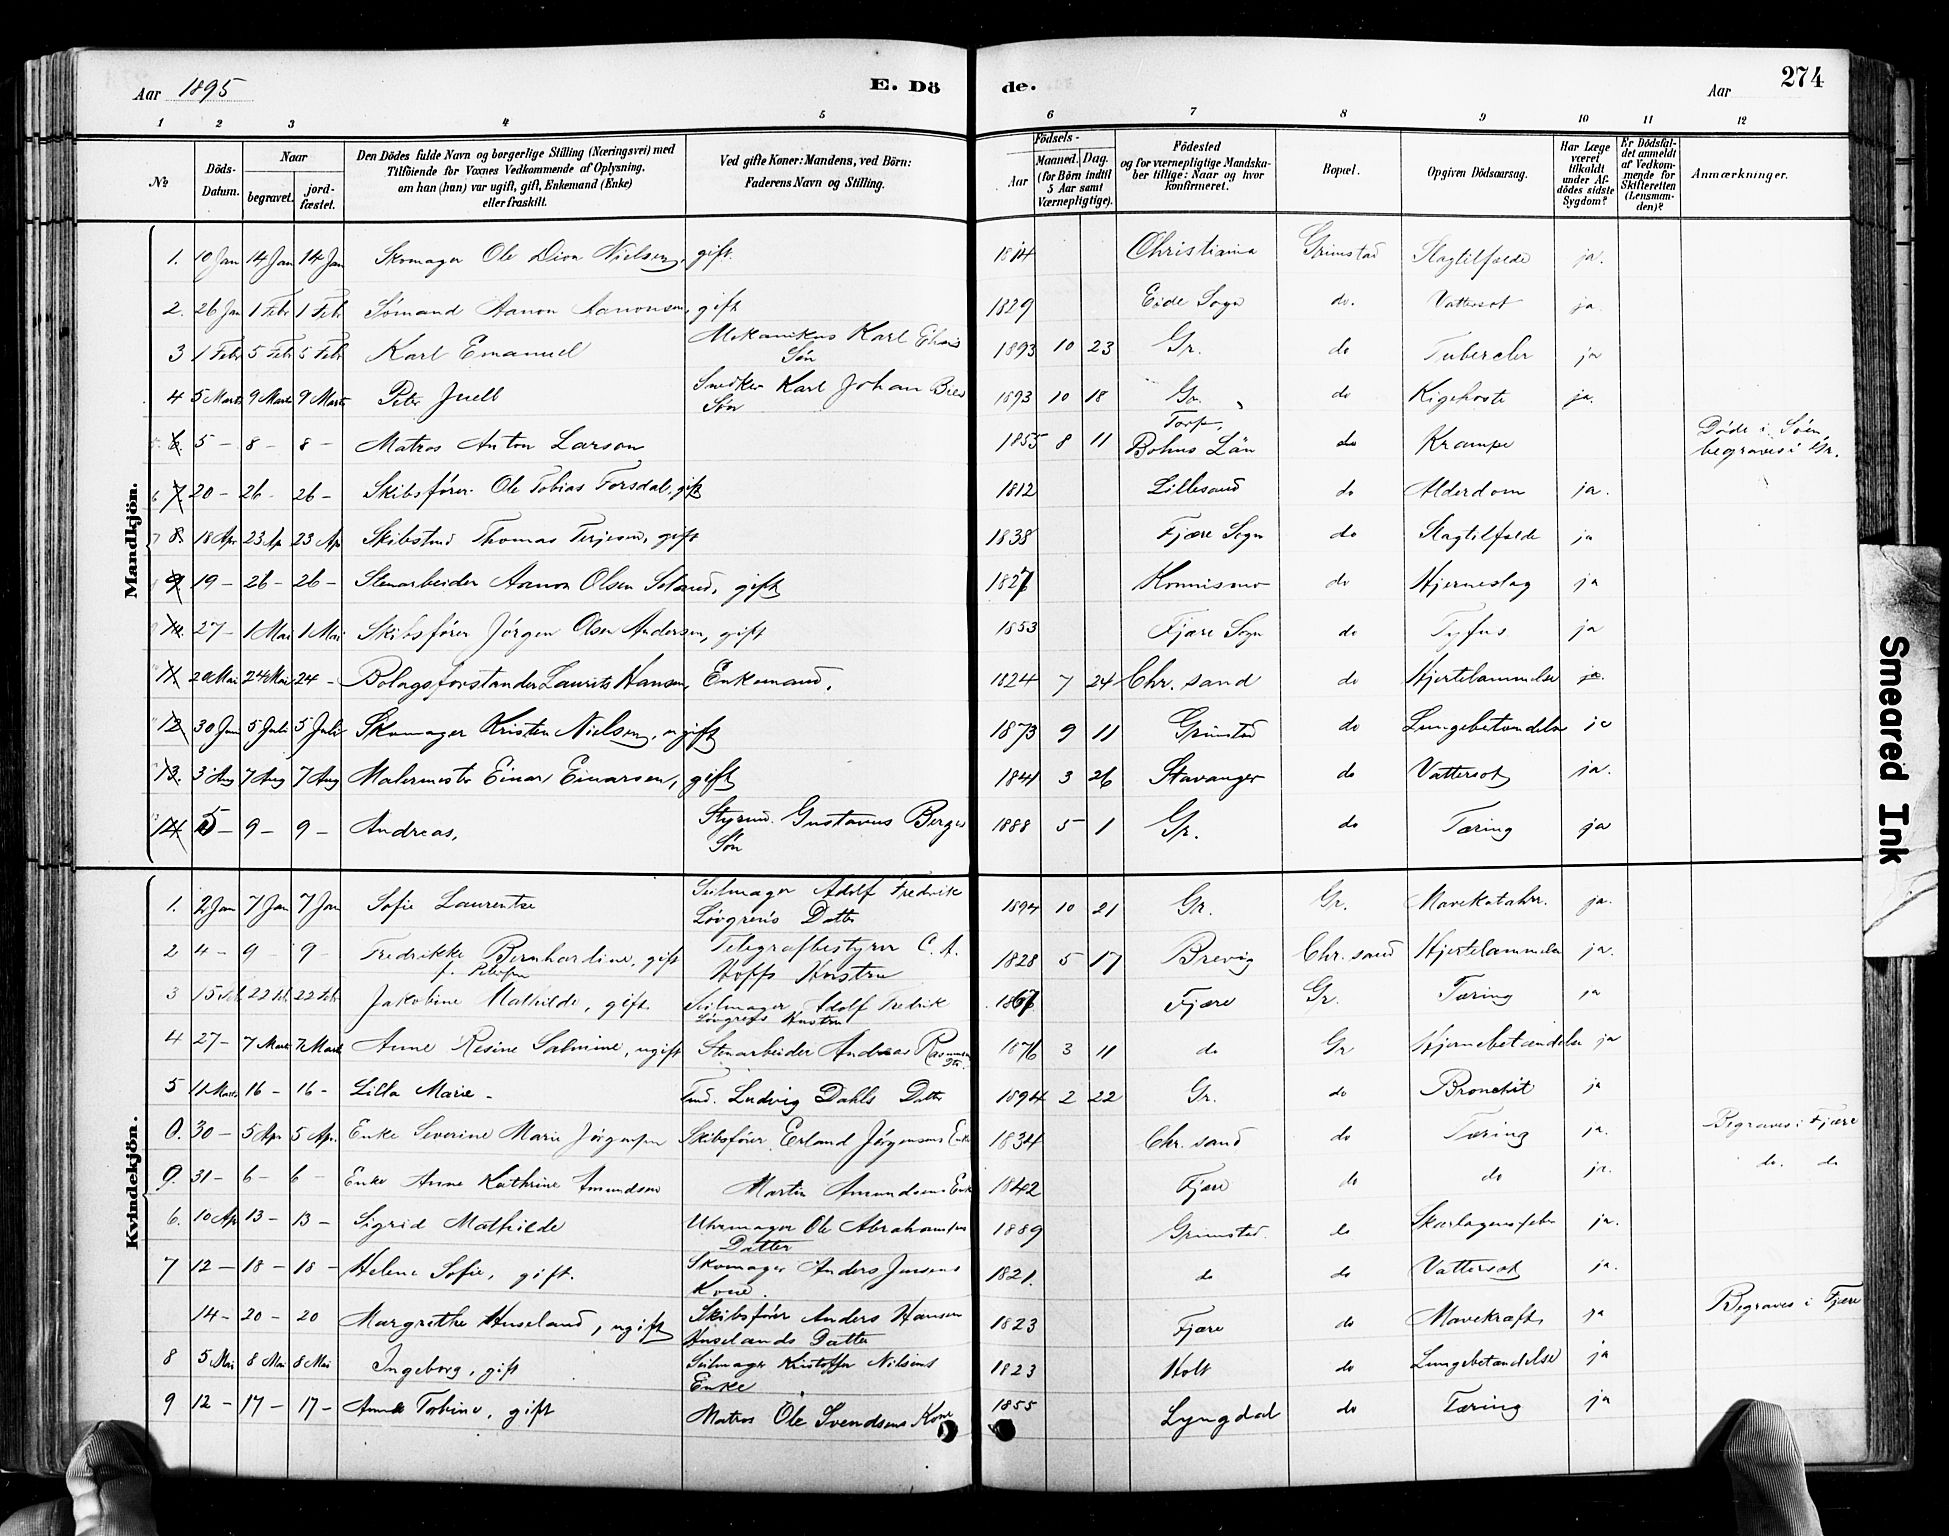 Aar 1895
E. Döde.
Aar
274
1 2 3 4 5 6 7 8 9 10 11 12
№
Döds-Datum.
Naar
begravet.
jordfæstet.
Den Dödes fulde Navn og borgerlige Stilling (Næringsvei) med
Tilföiende for Voxnes Vedkommende af Oplysning,
om han (hun) var ugift, gift, Enkemand (Enke)
eller fraskilt.
Ved gifte Koner: Mandens, ved Börn:
Faderens Navn og Stilling.
Födsels-
Aar
Maaned. Dag.
(for Börn indtil
5 Aar samt
Værnepligtige).
Födested
og for værnepligtige Mandskaber tillige: Naar og hvor
konfirmeret.
Bopæl.
Opgiven Dödsaarsag.
Har Læge
været
tilkaldt
under Afdödes sidste
Sygdom?
Er Dödsfaldet anmeldt
af Vedkommende for
Skifteretten
(Lensmanden)?
Anmærkninger.
Mandkjön.
1. 10 Jan 14 Jan 14 Jan Skomager Ole Dion Nielsen, gift. 1814 Christiania Grimstad Slagtilfælde ja.
2. 26 Jan 1 Febr 1 Febr Sømand Aanon Aanonsen, gift 1829 Eide Sogn do. Vattersot ja.
3 1 Febr 5 Febr 5 Febr Karl Emanuel Mekanikus Karl Søn 1893 10 23 Gr. do Tubercler ja
4 5 Marts 9 Marts 9 Marts Peter Juell Snedker Karl Johan Søn 1893 10 18 Gr. do Kighoste ja.
6. 5 - 8 - 8 - Matros Anton Larson 1855 8 11 Torp, Bohus Län do Krampe Døde i Søen begraves i Gr.
6 7 20 - 26 - 26 - Skibsfører Ole Tobias Torsdal, gift 1812 Lillesand do Alderdom ja.
7 8. 18 Apr 23 Ap 23 Ap Skibstmd Thomas Terjesen, gift 1838 Fjære Sogn do Slagtilfælde ja
9. 19 - 26 - 26 - Stenarbeider Aanon Olsen, gift 1827 Konnismo do Hjerneslag ja
10. 27 - 1 Mai 1 Mai Skibsfører Jørgen Olsen Andersen, gift 1853 Fjære Sogn do Tyfus ja
11 20 Mai 24 Mai 24 - Bolagsforstander Laurits Hansen, Enkemand. 1824 7 24 Chr.sand do Hjertelammelse ja.
12 30 Juni 5 Juli 5 Juli Skomager Kristen Nielsen, ugift 1873 9 11 Grimstad do Lungebetændelse ja
13. 3 Aug 7 Aug 7 Aug Malermester Einar Einarsen, gift 1841 3 26 Stavanger do Vattersot ja.
14 5 - 9 - 9 - Andreas, Styrmd. Gustavus Berges Søn 1888 5 1 Gr. do Tæring ja
Kvindekjön.
1. 2 Jan 7 Jan 7 Jan Sofie Laurentze Seilmager Adolf Fredrik Løvgrens Datter 1894 10 21 Gr. Gr. Mavekatahr. ja.
2 4 - 9 - 9 - Fredrikke Bernhardine, gift f. Petersen Telegrafbestyrer C. A. Hoffs Hustru 1828 5 17 Brevig Chr.sand Hjertelammelse ja.
3 15 Feb 22 Feb 22 Febr Jakobine Mathilde, gift. Seilmager Adolf Fredrik Løvgrens Hustru 1867 Fjære Gr. Tæring ja
4 27 - 7 Marts 7 Marts Anne Resine Salmine, ugift Stenarbeider Andreas Rasmussen Dtr. 1876 3 11 do Gr Hjernebetændelse ja
5 11 Marts 16 - 16 - Lilla Marie - Tmd. Ludvig Dahls Datter 1894 2 22 Gr. do Bronchit ja
0. 30 - 5 Apr 5 Apr. Enke Severine Marie Jørgensen Skibsfører Erland Jørgensens Enke 1834 Chr.sand do Tæring ja. Begraves i Fjære
0. 31 - 6 - 6 - Enke Anne Kathrine Amundsen Martin Amundsens Enke 1842 Fjære do do ja. do. do
6. 10 Ap 13 - 13 - Sigrid Mathilde Uhrmager Ole Abrahamsens Datter 1889 Grimstad. do Skarlagensfeber ja.
7 12 - 18 - 18 - Helene Sofie, gift. Skomager Anders Jensens Kone. 1821. do do Vattersot ja.
14 - 20 - 20 Margrethe Huseland, ugift Skibsfører Anders Hansen Huselands Datter 1823 Fjære do Mavekræft ja Begraves i Fjære
8 5 Mai 8 Mai 8 Mai Ingeborg, gift Seilmager Kristoffer Nilsens Enke 1823 Holt do Lungebetændelse ja
9 12 - 17 - 17 - Anne Tobine, gift Matros Ole Svendsens Kone 1855 Lyngdal do Tæring ja
Smeared Ink